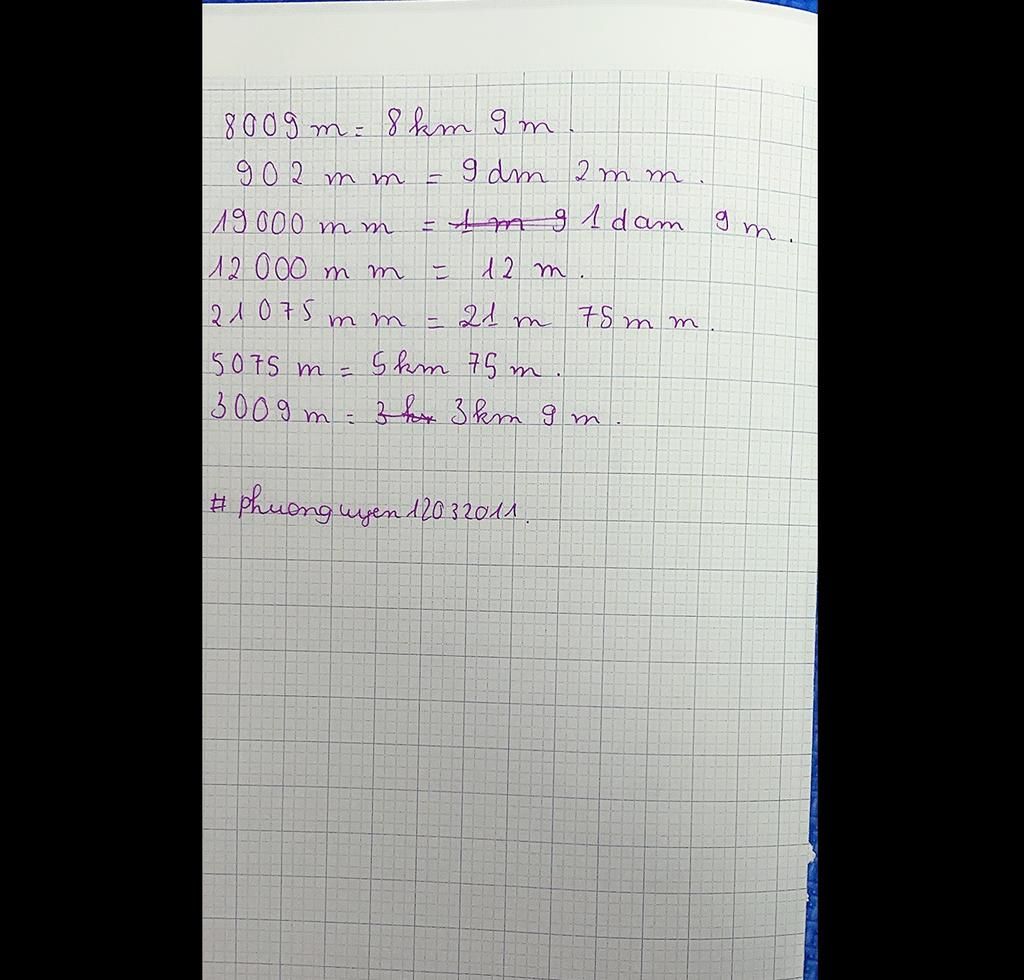 8009 m = 8 km 9 m.
902 mm = 9 dm 2 mm.
19000 mm = 1 m 9 1 dam 9 m.
12000 mm = 12 m.
21075 mm = 21 m 75 mm.
5075 m = 5 km 75 m.
3009 m = 3 k 3 km 9 m.
# phuonguyen12032011.